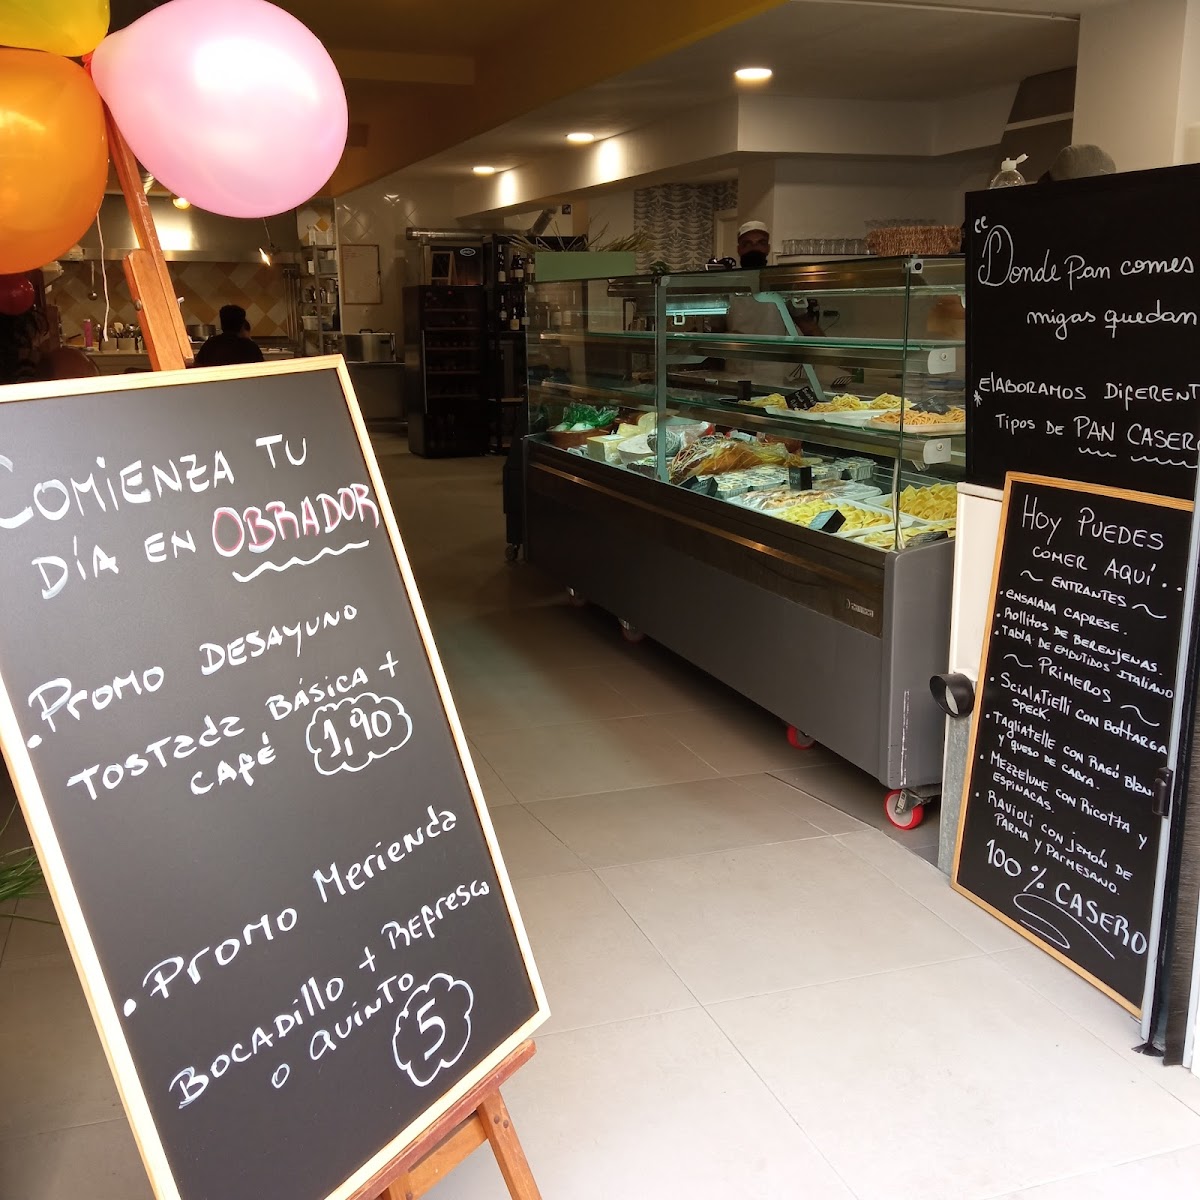 COMIENZA TU
DÍA EN OBRADOR
• PROMO DESAYUNO
TOSTADA BÁSICA +
CAFÉ 1,90
• PROMO Merienda
BOCADILLO + Refresco
O QUINTO 5
"Donde pan comes
migas quedan
* ELABORAMOS DIFERENT
TIPOS DE PAN CASER
HOY PUEDES
COMER AQUÍ.
~ ENTRANTES ~
• ENSALADA CAPRESE.
• ROLLITOS DE BERENJENAS.
• TABLA DE EMBUTIDOS ITALIANO
~ PRIMEROS ~
• SCIALATIELLI CON BOTTARGA
SPECK.
• TAGLIATELLE CON RAGÚ BLAN
Y QUESO DE CABRA.
• MEZZELUNE CON RICOTTA Y
ESPINACAS.
• RAVIOLI CON JAMÓN DE
PARMA Y PARMESANO.
100 % CASERO